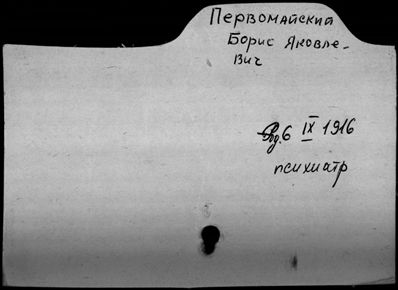 Первомайский
Борис Яковле-
вич
Род. 6 IX 1916
психиатр